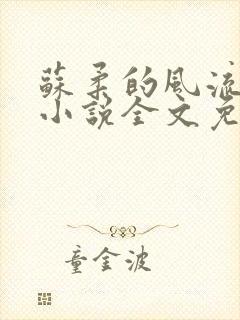 蘇柔的風流
小說全文免
童金波